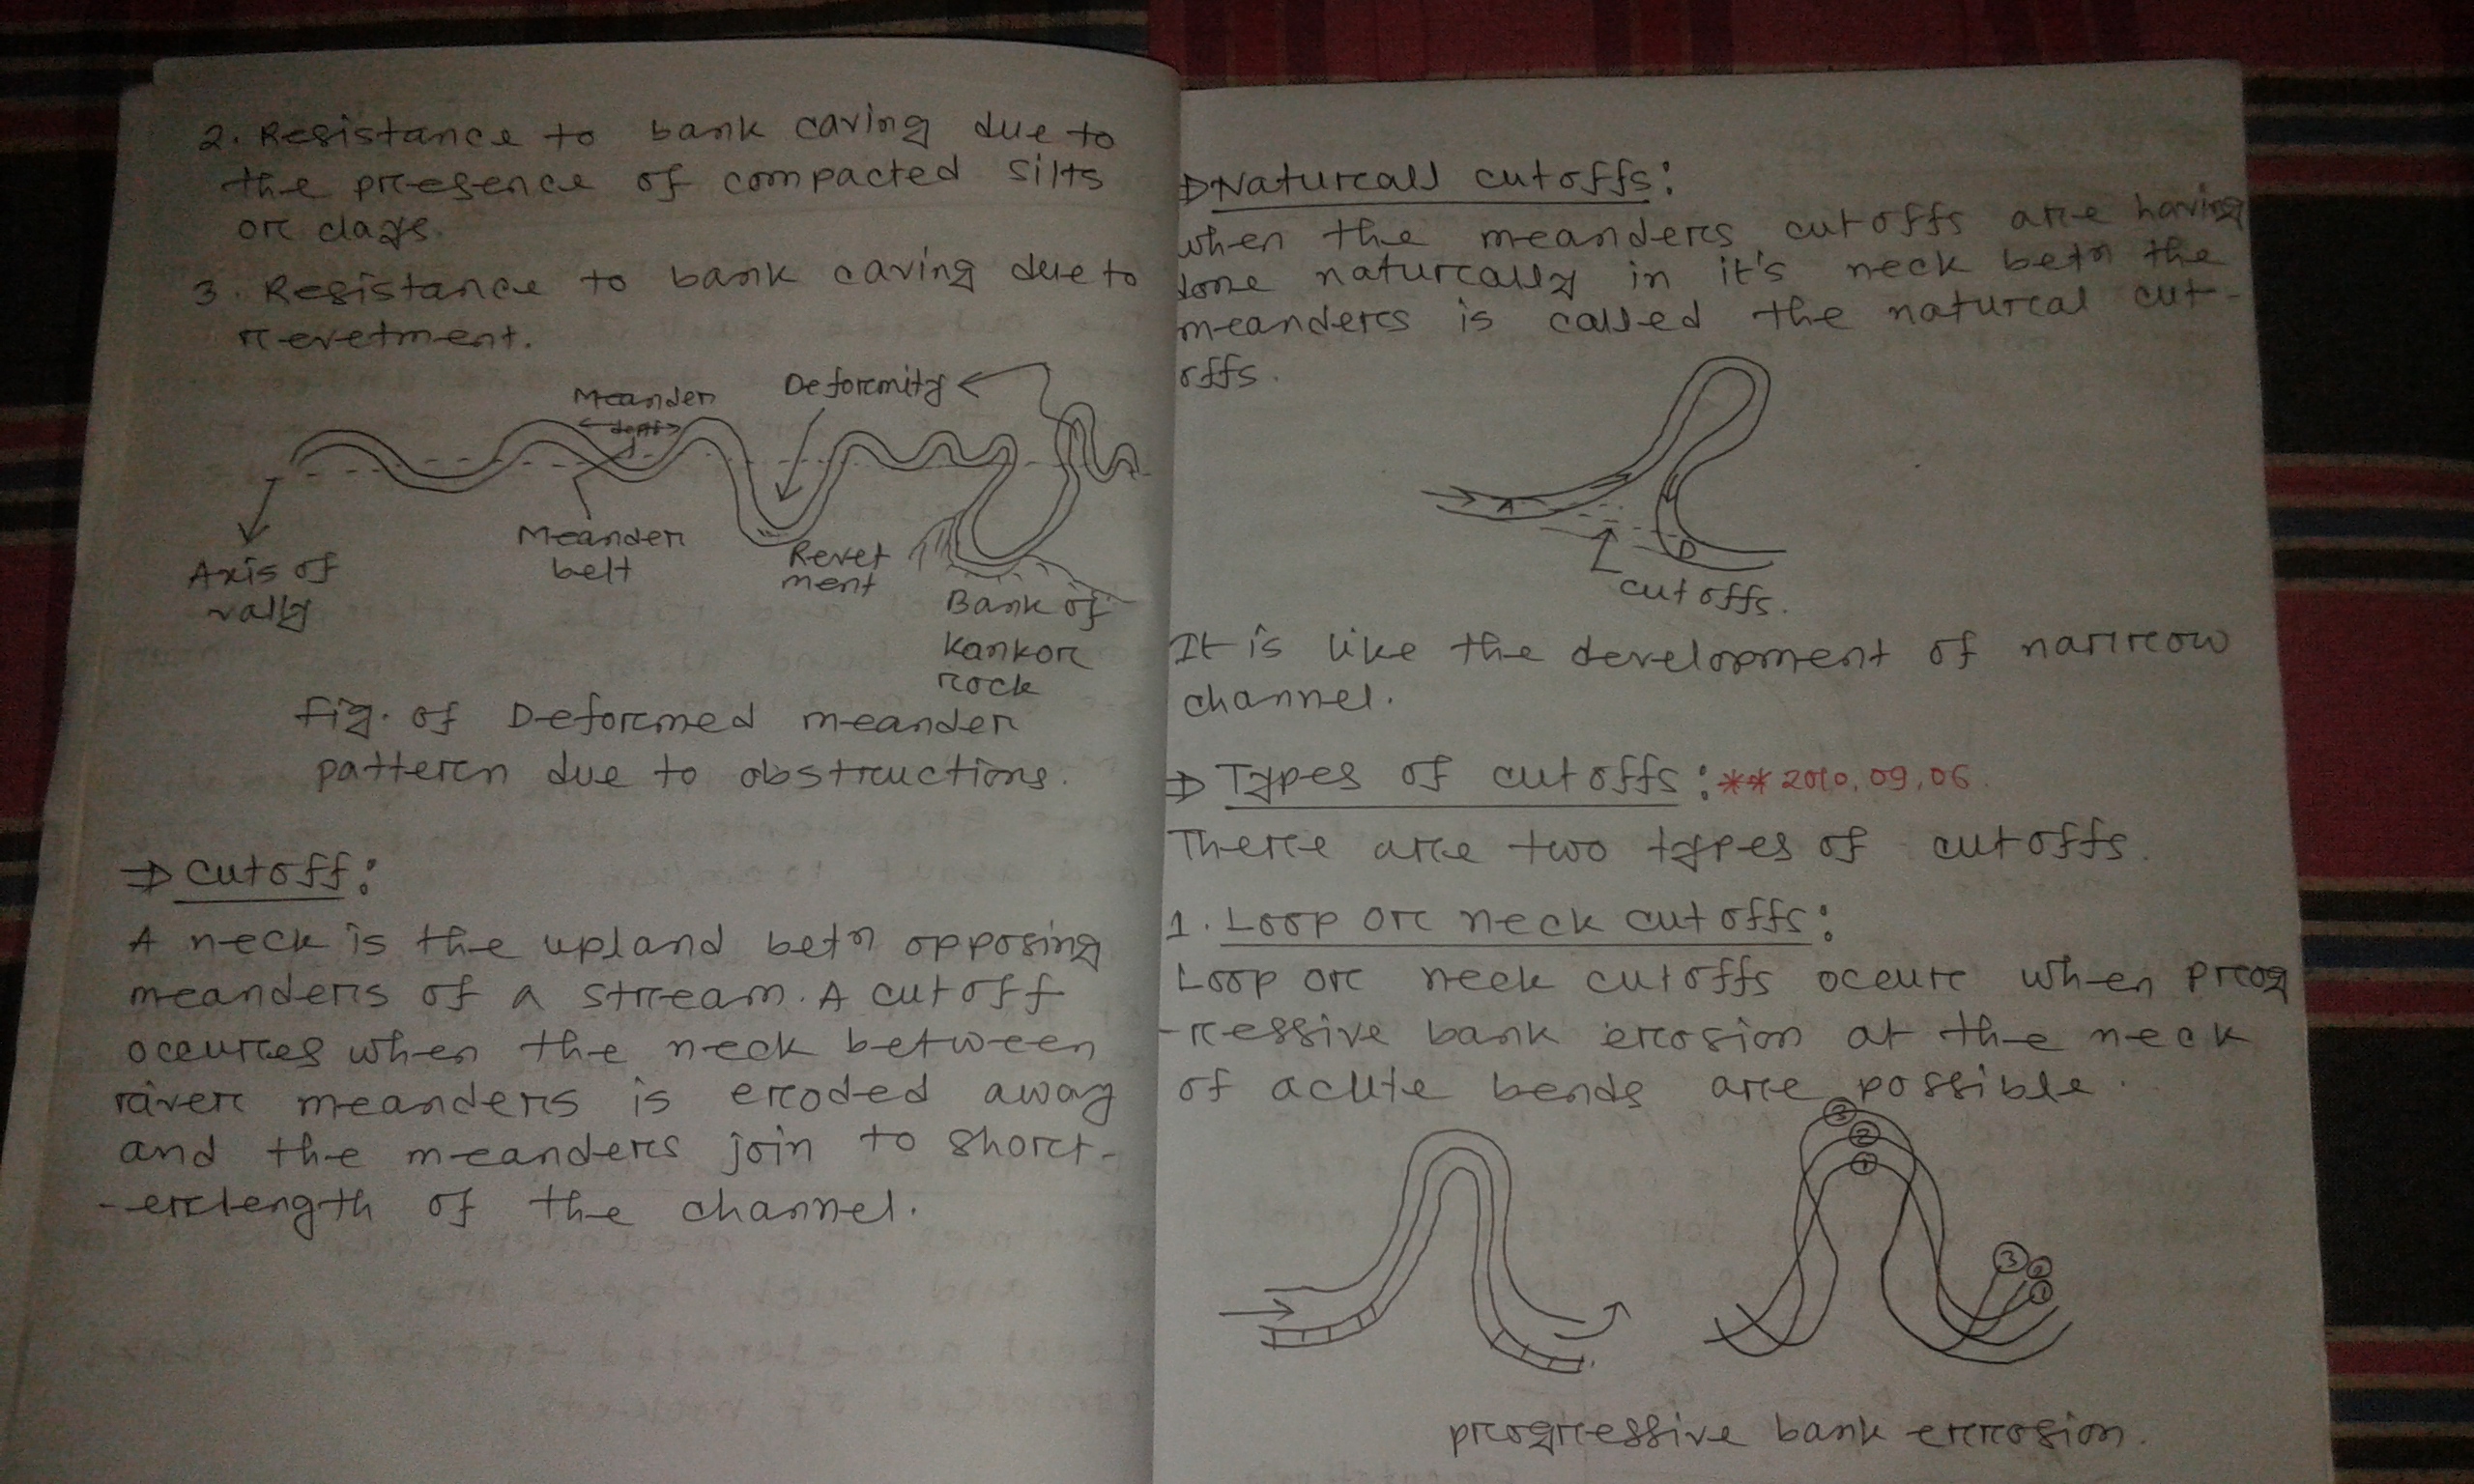 2. Resistance to bank caving due to
the presence of compacted silts
or clays.
3. Resistance to bank caving due to
revetment.
Meander
Deformity
Axis of
vally
Meander
belt
Revet
ment
Bank of
kankor
rock
fig. of Deformed meander
pattern due to obstructions.
⇒ Cutoff:
A neck is the upland betn opposing
meanders of a stream. A cutoff
occurres when the neck between
river meanders is eroded away
and the meanders join to short-
-erlength of the channel.
⇒ Naturall cutoffs:
when the meanders cutoffs are having
done naturally in it's neck betn the
meanders is called the natural cut-
offs.
cutoffs.
It is like the development of narrow
channel.
⇒ Types of cutoffs: ** 2010, 09, 06.
There are two types of cutoffs.
1. Loop or neck cutoffs:
Loop or neck cutoffs occure when prog
-ressive bank erosion at the neck
of acute bends are possible.
3
2
1
3
2
1
progressive bank errosion.